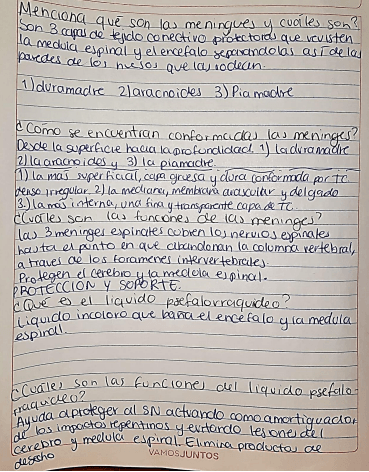 Menciona que son las meninges y cuales son?
Son 3 capas de tejido conectivo protectoras que revisten
la medola espinal y el encefalo separandolas asi de las
paredes de los huesos que las rodean.
1) duramadre 2) aracnoides 3) Piamadre
¿Como se encuentran conformadas las meninges?
Desde la superficie hacia la profondidad. 1) la duramadre
2) la aracnoides y 3) la piamadre.
1) la mas superficial, capa gruesa y dura conformada por TC
denso irregular. 2) la mediana, membrana avascular y delgado
3) la mas interna, una fina y transparente capa de TC.
¿Cuales son las funciones de las meninges?
las 3 meninges espinales cubren los nervios espinales
hasta el punto en que abandonan la columna vertebral,
a traves de los foramenes intervertebrales.
Protegen el cerebro y la medola espinal.
PROTECCION Y SOPORTE.
¿Que es el liquido psefalorraquideo?
Liquido incoloro que baña el encefalo y la medula
espinal.
¿Cuales son las funciones del liquido psefalo-
rraquideo?
Ayuda a proteger al SN actuando como amortiguador
de los impactos repentinos y evitando lesiones del
cerebro y medula espiral. Elimina productos de
desecho
VAMOSJUNTOS